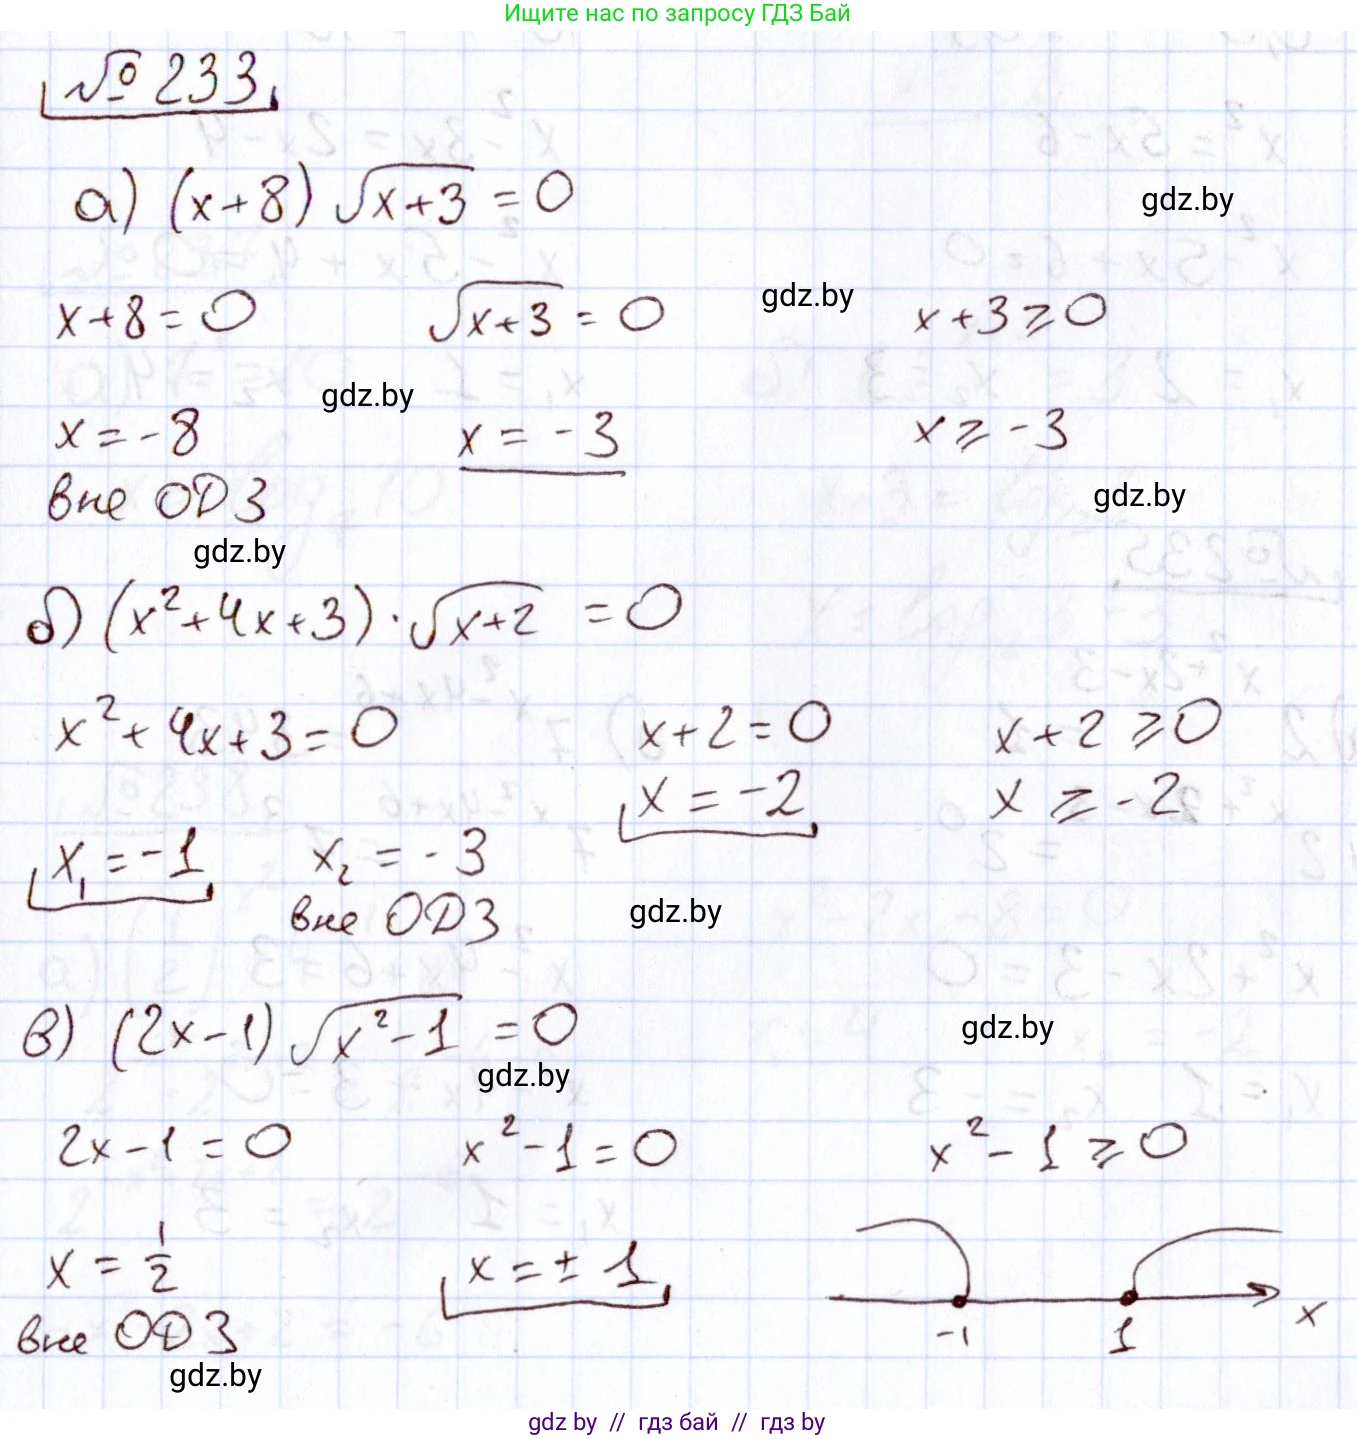 Ищите нас по запросу ГДЗ Бай
№ 233
а) (x+8) √(x+3) = 0
gdz.by
x+8=0 √(x+3) = 0 gdz.by x+3 ⩾ 0
gdz.by
x = -8 x = -3 x ⩾ -3
вне ОДЗ gdz.by
gdz.by
б) (x²+4x+3) · √(x+2) = 0
x²+4x+3=0 x+2=0 x+2 ⩾ 0
x = -2 x ⩾ -2
x₁ = -1 x₂ = -3
вне ОДЗ gdz.by
в) (2x-1) √(x²-1) = 0 gdz.by
gdz.by
2x-1=0 x²-1=0 x²-1 ⩾ 0
x = 1/2 x = ± 1
-1 1 x
вне ОДЗ
gdz.by
gdz by // гдз бай // гдз by